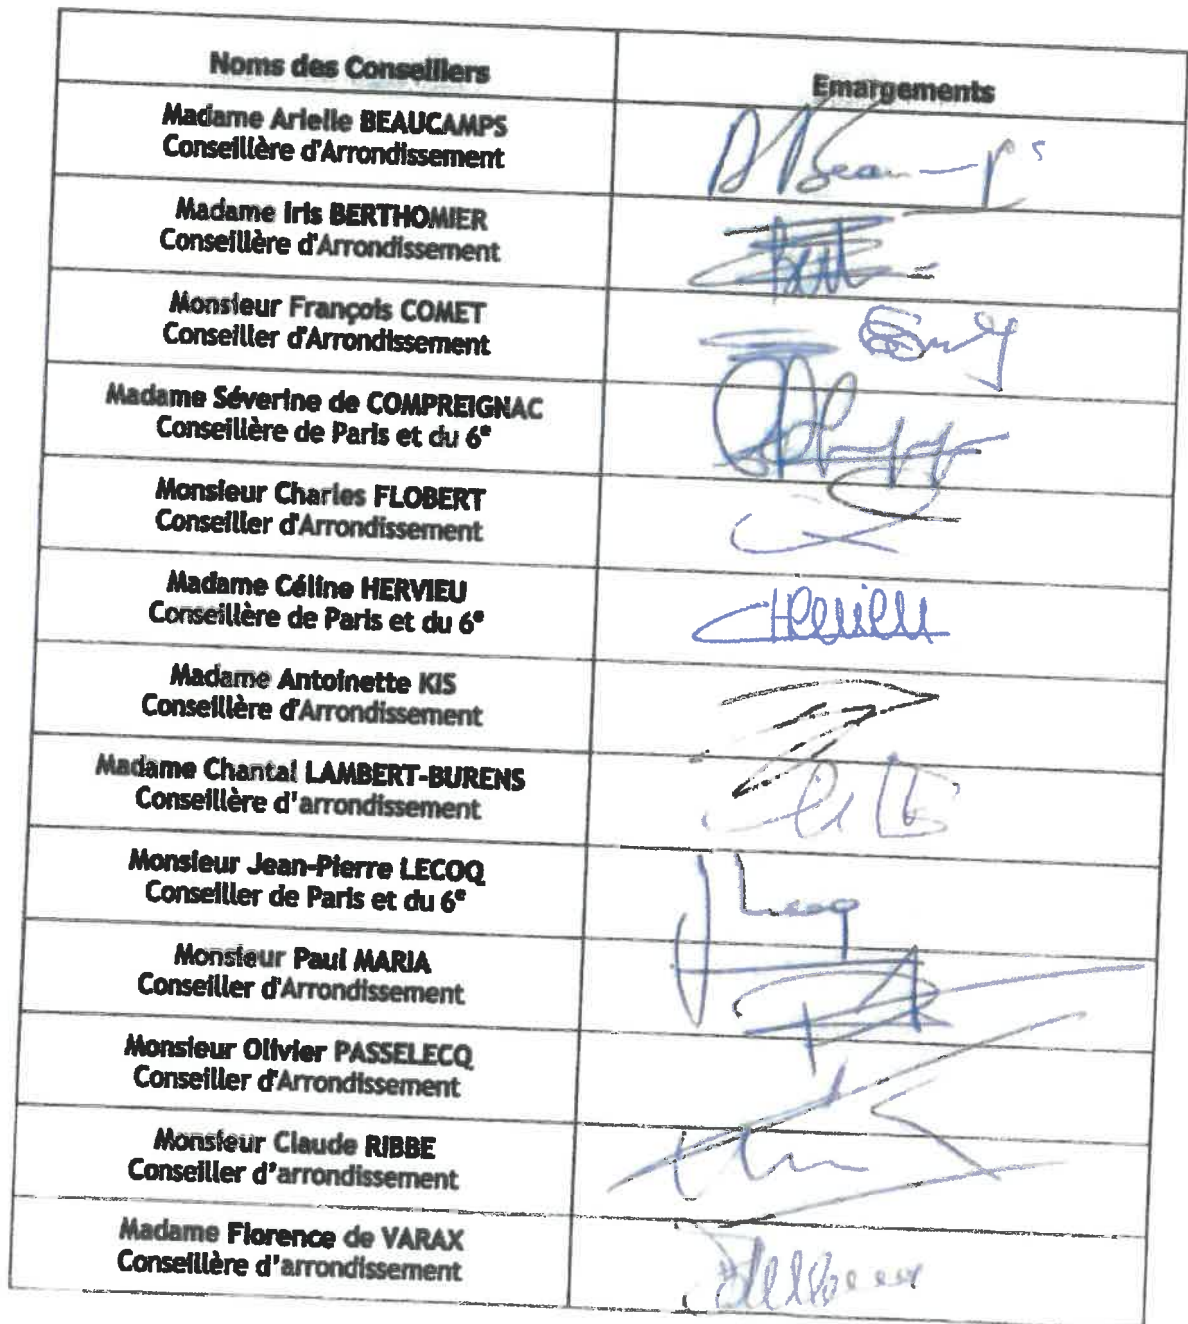 Noms des Conseillers
Emargements
Madame Arielle BEAUCAMPS
Conseillère d'Arrondissement
Madame Iris BERTHOMIER
Conseillère d'Arrondissement
Monsieur François COMET
Conseiller d'Arrondissement
Madame Séverine de COMPREIGNAC
Conseillère de Paris et du 6e
Monsieur Charles FLOBERT
Conseiller d'Arrondissement
Madame Céline HERVIEU
Conseillère de Paris et du 6e
CHervieu
Madame Antoinette KIS
Conseillère d'Arrondissement
Madame Chantal LAMBERT-BURENS
Conseillère d'arrondissement
Monsieur Jean-Pierre LECOQ
Conseiller de Paris et du 6e
JLecoq
Monsieur Paul MARIA
Conseiller d'Arrondissement
Monsieur Olivier PASSELECQ
Conseiller d'Arrondissement
Monsieur Claude RIBBE
Conseiller d'arrondissement
Madame Florence de VARAX
Conseillère d'arrondissement